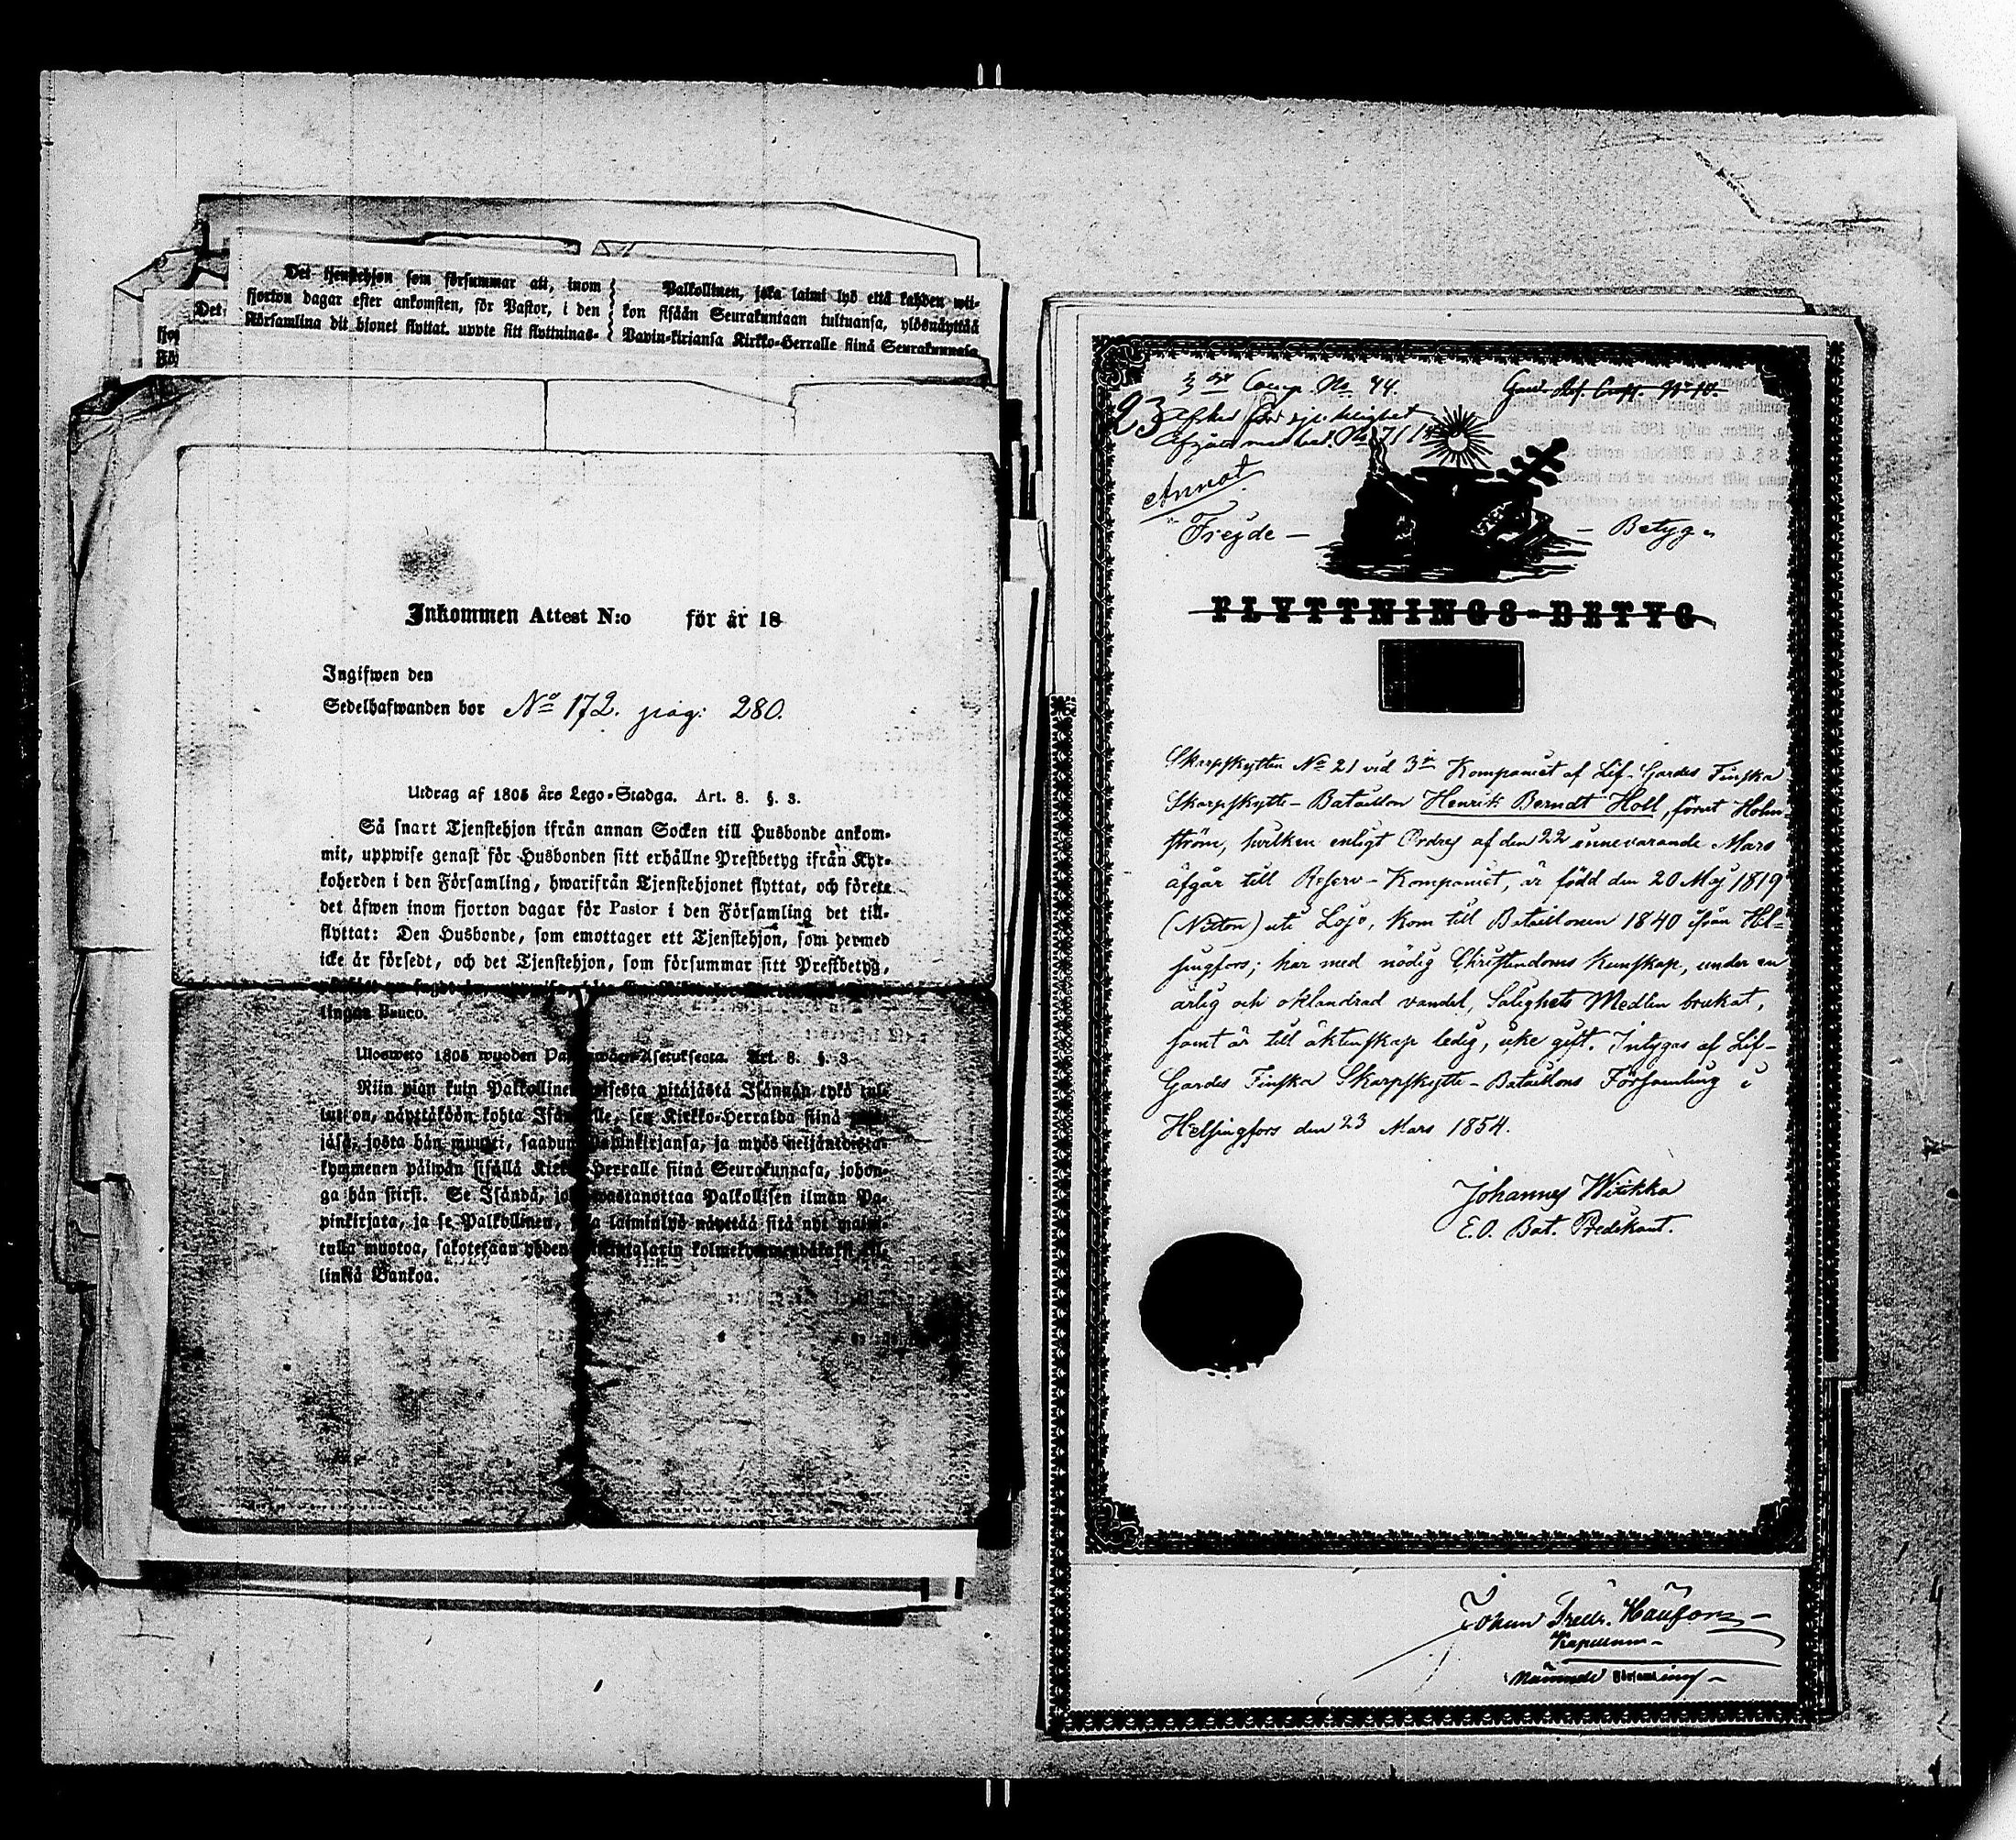 Det tjenstehjon som försummar att, inom
fjorton dagar efter ankomsten, för Pastor, i den
Församling dit hjonet flyttat, uppte sitt flyttnings-
Palkollinen, joka laimi lyö että kahden wii-
kon sisään Seurakuntaan tultuansa, ylösnäyttää
Papin-kirjansa Kirkko-Herralle siinä Seurakunnasa
Det
Inkommen Attest N:o för år 18
Ingifwen den
Sedelhafwanden bor No 172. pag: 280.
Utdrag af 1805 års Lego-Stadga. Art. 8. §. 3.
Så snart Tjenstehjon ifrån annan Socken till Husbonde ankom-
mit, uppwise genast för Husbonden sitt erhållne Prestbetyg ifrån Kyr-
koherden i den Församling, hwarifrån Tjenstehjonet flyttat, och förete
det äfwen inom fjorton dagar för Pastor i den Församling det till-
flyttat: Den Husbonde, som emottager ett Tjenstehjon, som dermed
icke är försedt, och det Tjenstehjon, som försummar sitt Prestbetyg,
lingar Banco.
Ulosweto 1805 wuoden Asetuksesta. Art. 8. §. 3
Niin pian kuin Palkollinen pitäjästä Isännän tykö tul-
lut on, näyttäköön kohta sen Kirkko-Herralda siinä
josta hän muutti, ja myös neljäntoista-
kymmenen päiwän sisällä Herralle siinä Seurakunnasa, johon-
ga hän siirsi. Se Isändä, wastanottaa Palkollisen ilman Pa-
pinkirjata, ja se Palkollinen, laiminlyö näyttää sitä nyt
tulla muotoa, sakotetaan yhden kolmekymmendäkaksi kil-
linkiä Bankoa.
3dje Comp. No. 44.
23
Annot.
Frejde — — Betyg
FLYTTNINGS-BETYG
Skarpskytten No 21 vid 3e Kompaniet af Lif-Gardes Finska
Skarpskytte-Bataillon Henrik Berndt Holl, förut Holm-
ström, hvilken enligt Ordres af den 22 innevarande Mars
afgår till Reserv-Kompaniet, är född den 20 Maj 1819
(Nitton) uti Lojo, kom till Bataillonen 1840 ifrån Hel-
singfors; har med nödig Christendoms kunskap, under en
ärlig och oklandrad vandel, Salighets Medlen brukat,
samt är till äktenskap ledig, icke gift. Intygas af Lif-
Gardes Finska Skarpskytte-Bataillons Församling i
Helsingfors den 23 Mars 1854.
Johannes Wiikka
E.O. Bat. Predikant.
Johan Fredr.